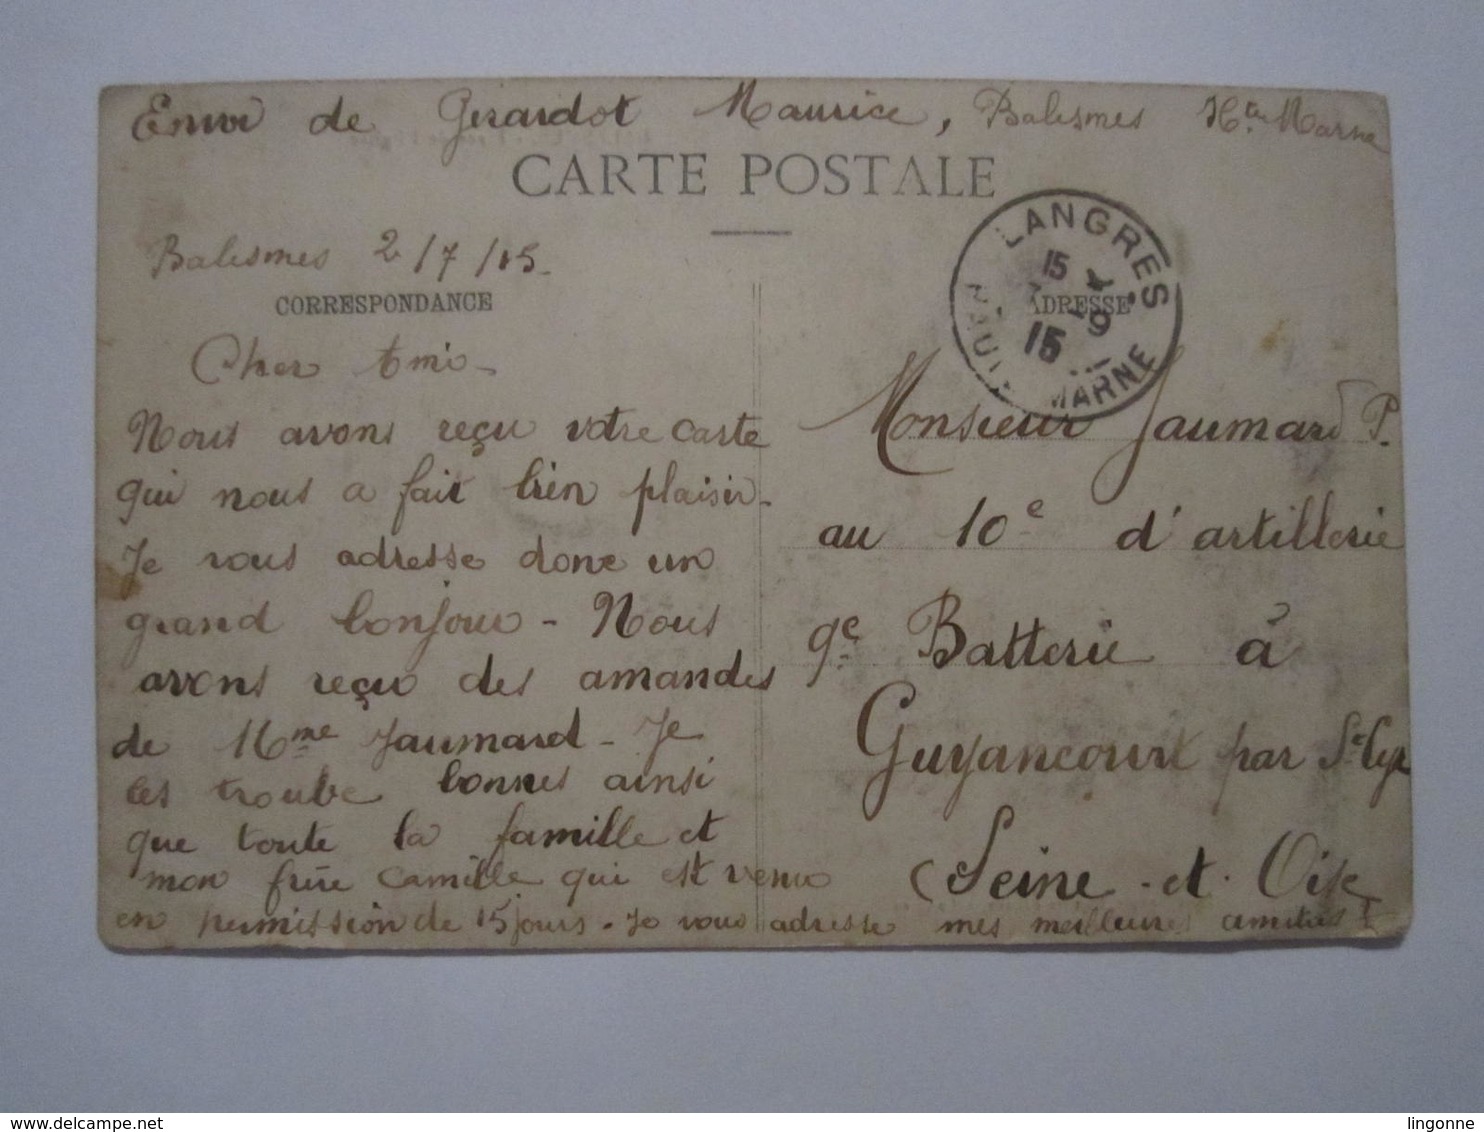 Envoi de Girardot Maurice, Balesmes Hte Marne
CARTE POSTALE
Balesmes 2/7/15-
CORRESPONDANCE
Cher Ami-
Nous avons reçu votre carte
qui nous a fait bien plaisir-
Je vous adresse donc un
grand bonjour - Nous
avons reçu des amandes
de Mme Jaumard - Je
les trouve bonnes ainsi
que toute la famille et
mon frère Camille qui est venu
en permission de 15 jours. Je vous adresse mes meilleures amitiés
LANGRES
15
9
15
HAUTE MARNE
ADRESSE
Monsieur Jaumard P.
au 10e d'artillerie
9e Batterie à
Guyancourt par St Cyr
(Seine-et-Oise)
www.delcampe.net
lingonne